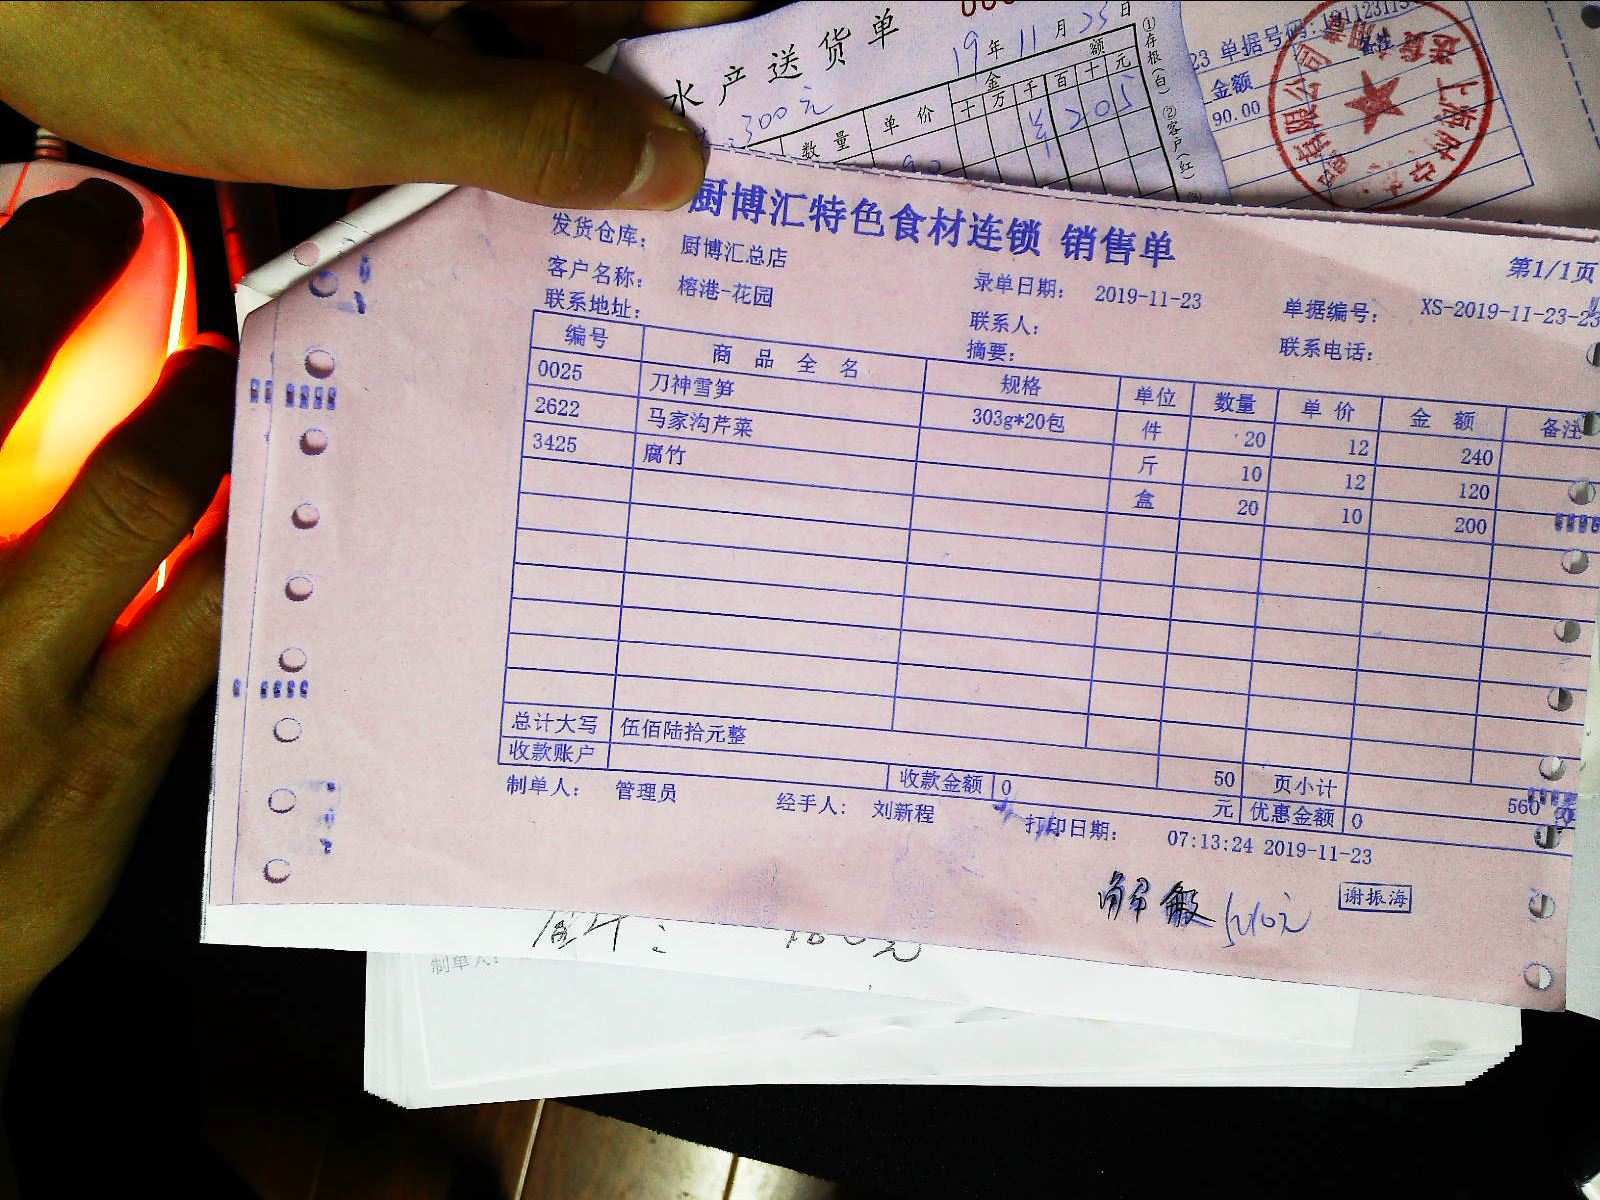 水产送货单
19年11月23日
300元
数量 单价 金额
十万千百十元
¥205
①存根(白) ②客户(红)
23 单据号码:
金额
90.00
厨博汇特色食材连锁 销售单
第1/1页
发货仓库: 厨博汇总店
客户名称: 榕港-花园 录单日期: 2019-11-23 单据编号: XS-2019-11-23-23
联系地址: 联系人: 联系电话:
摘要:
编号 商品全名 规格 单位 数量 单价 金额 备注
0025 刀神雪笋 303g*20包 件 20 12 240
2622 马家沟芹菜 斤 10 12 120
3425 腐竹 盒 20 10 200
总计大写 伍佰陆拾元整 50 页小计 560
收款账户 收款金额 0 元 优惠金额 0
制单人: 管理员 经手人: 刘新程 打印日期: 07:13:24 2019-11-23
解敏
谢振海
制单人: